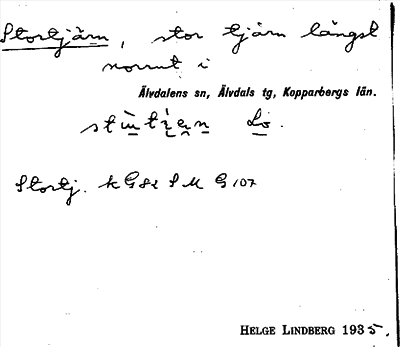 Stortjärn, stor tjärn längst
norrut i
Älvdalens sn, Älvdals tg, Kopparbergs län.
Lö.
Stortj. k G82 S M G 107
HELGE LINDBERG 1935.